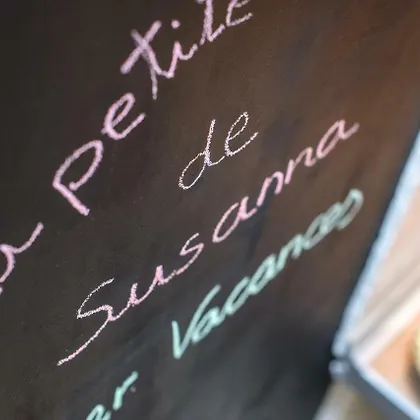 petite
de
Susanna
Vacances